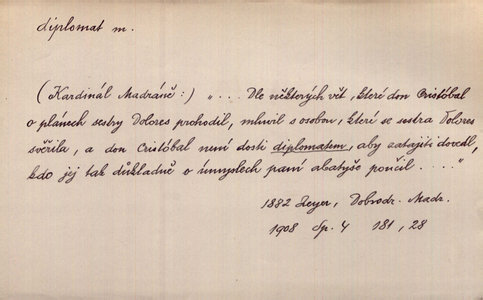 diplomat m.
(Kardinál Madráně:) „... Dle některých vět, které don Cristóbal
o plánech sestry Dolores prohodil, mluvil s osobou, které se sestra Dolores
svěřila, a don Cristóbal není dosti diplomatem, aby zatajiti dovedl,
kdo jej tak důkladně o úmyslech paní abatyše poučil...."
1882 Zeyer, Dobrodr. Madr.
1908 Sp. 4 181, 28